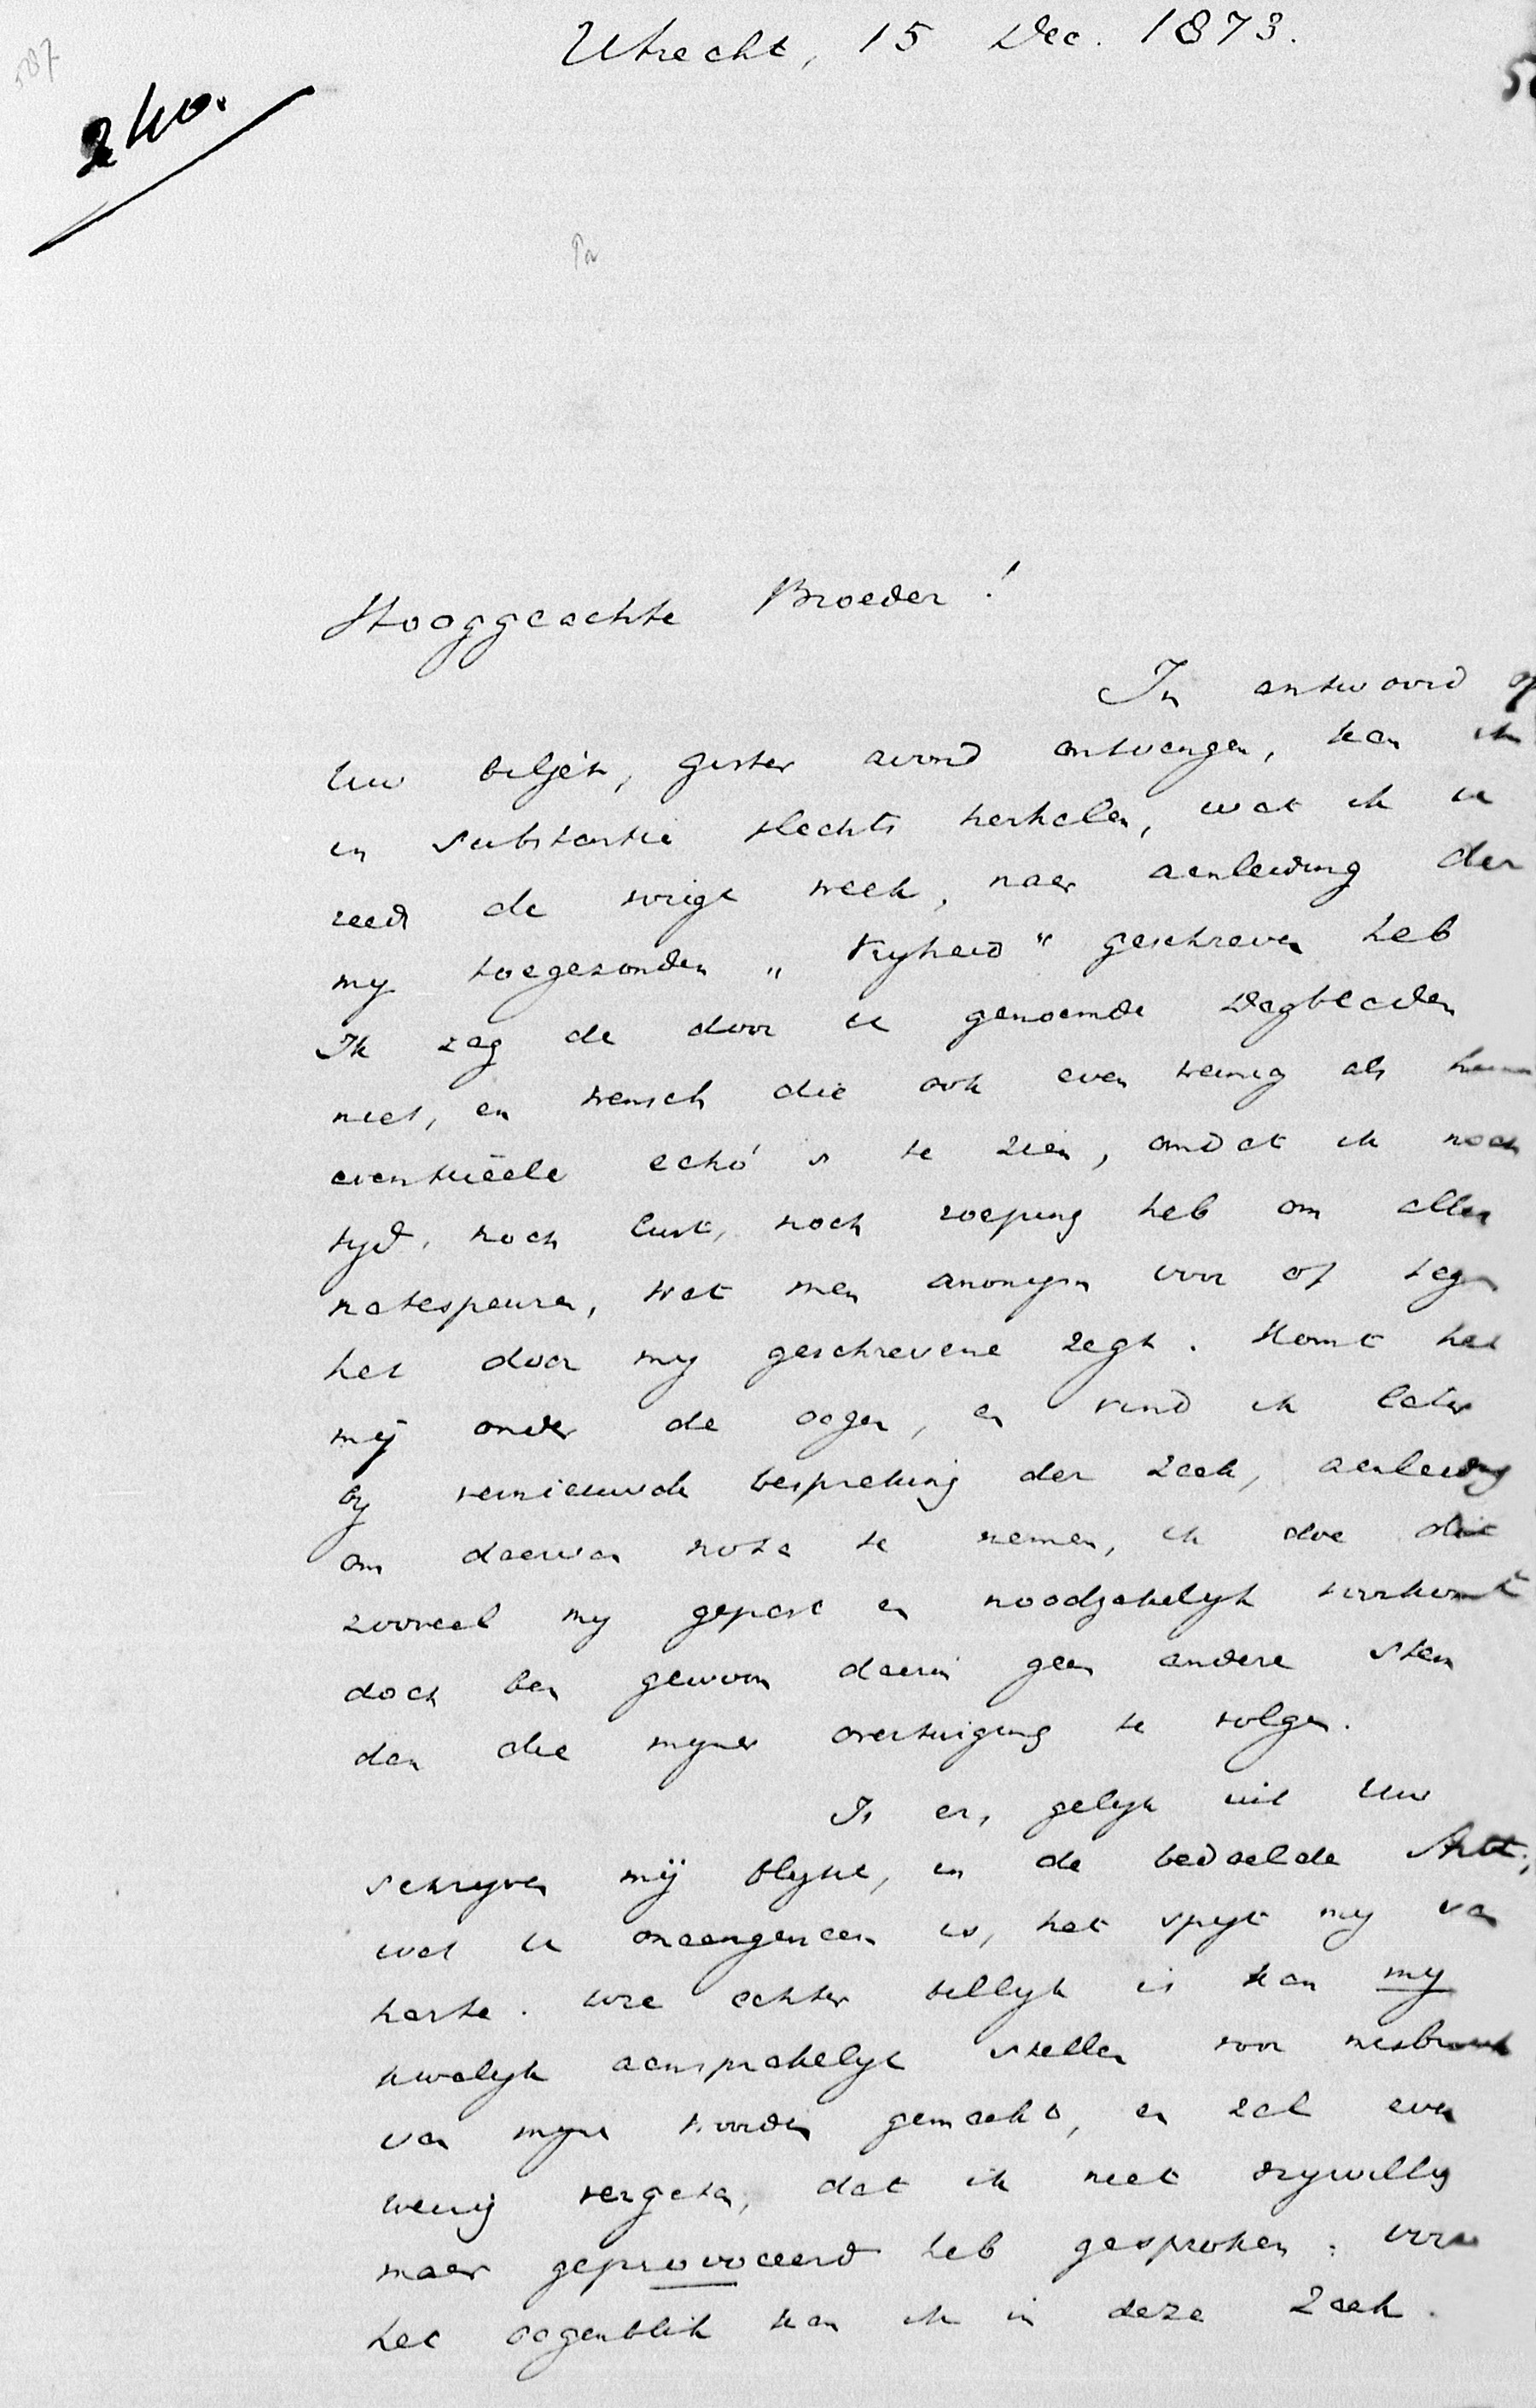 Utrecht, 15 Dec. 1873.
5287
240.
Hooggeachte Broeder!
In antwoord op
Uw biljèt, gister avond ontvangen, kan ik
in substantie slechts herhalen, wat ik u
reeds de vorige week, naar aanleiding der
my toegezonden „Vryheid" geschreven heb
Ik zag de door u genoemde Dagbladen
niet, en wensch die ook even weinig als hunne
eventuëele echo's te zien, omdat ik noch
tyd, noch lust, noch roeping heb om alles
natespeuren, wat men anonym voor of tegen
het door my geschrevene zegt. Komt het
mij onder de oogen, en vind ik later
by vernieuwde bespreking der zaak, aanleiding
om daarvan nota te nemen, ik doe dit
zooveel my gepast en noodzakelyk voorkomt
doch ben gewoon daarin geen andere stem
dan die myner overtuiging te volgen.
Is er, gelyk uit Uw
schryven mij blykt, in de bedoelde Artt.,
wat u onaangenaam is, het spyt my van
harte. Wie echter billyk is kan my
kwalyk aansprakelyk stellen voor misbruik
van myne woorden gemaakt, en zal even
weinig vergeten, dat ik niet vrywillig
maar geprovoceerd heb gesproken: voor
het oogenblik kan ik in deze zaak.